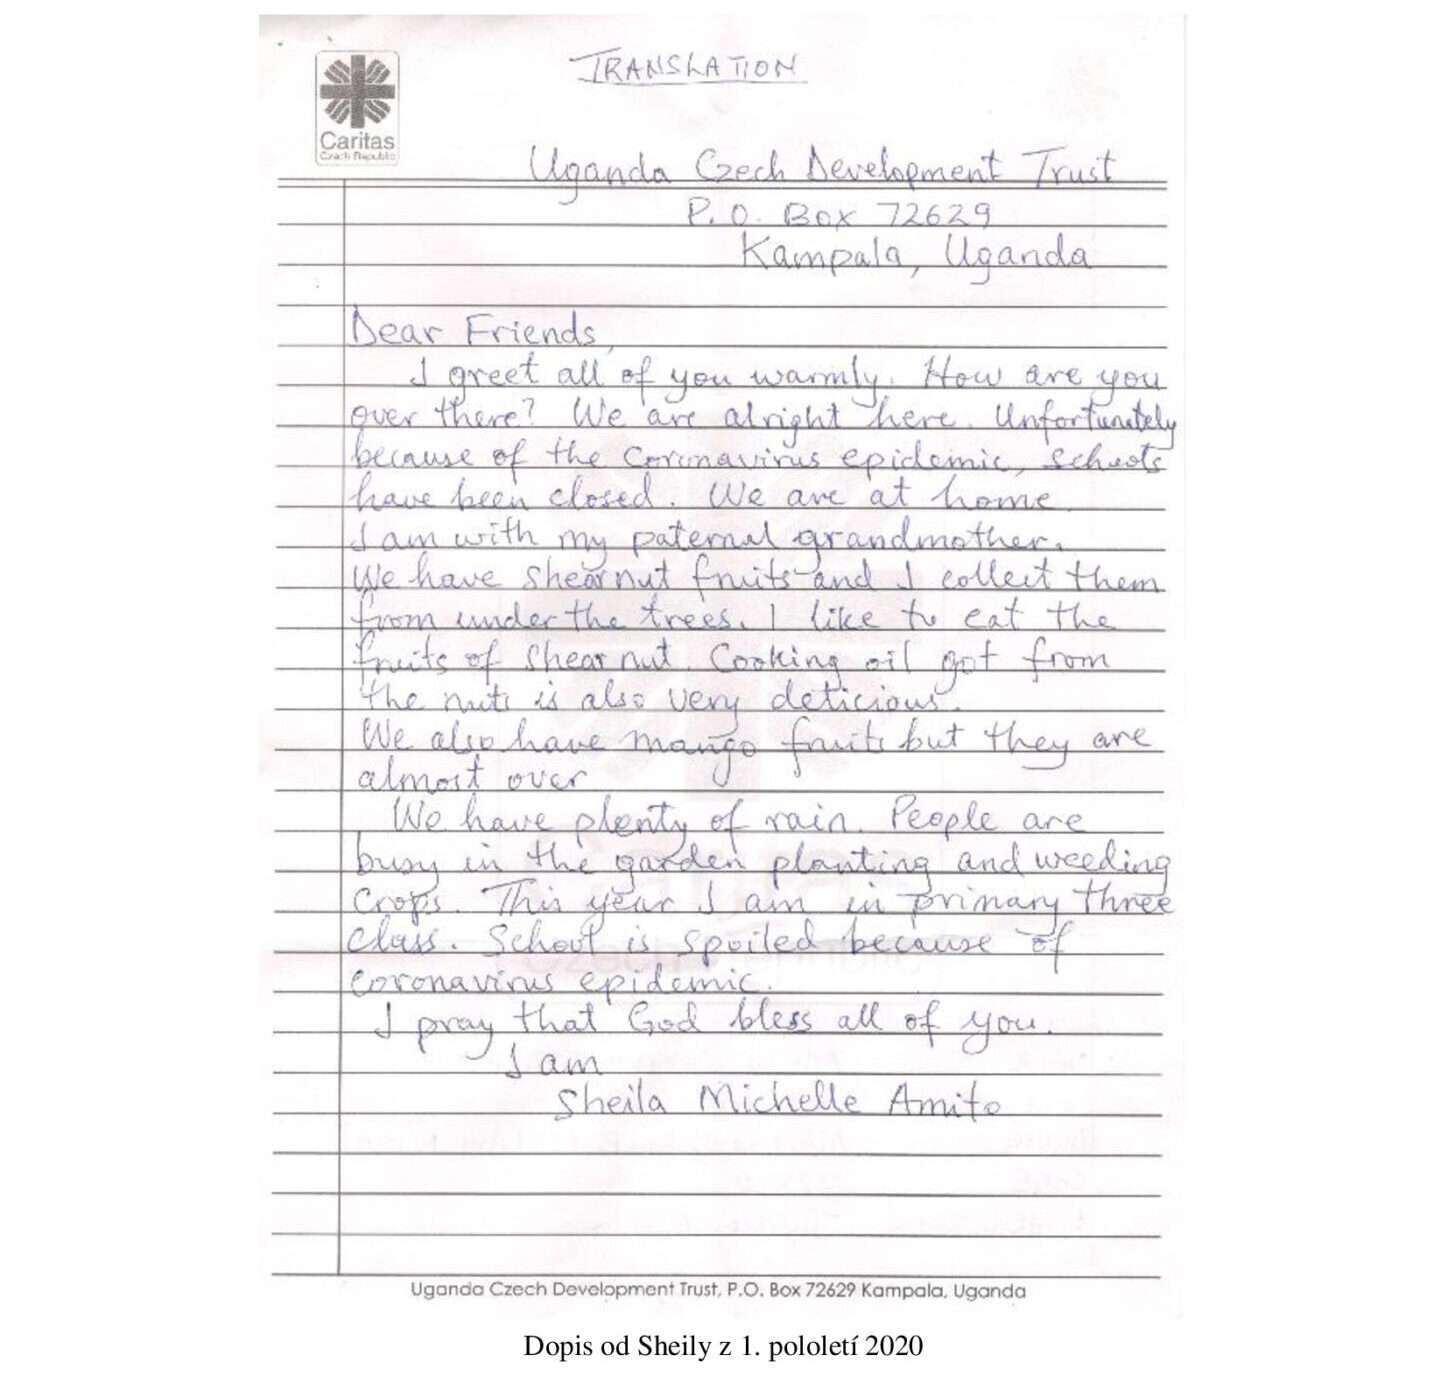 TRANSLATION
Caritas
Czech Republic
Uganda Czech Development Trust
P.O. Box 72629
Kampala, Uganda
Dear Friends,
I greet all of you warmly. How are you
over there? We are alright here. Unfortunately
because of the Coronavirus epidemic, schools
have been closed. We are at home.
I am with my paternal grandmother.
We have shearnut fruits and I collect them
from under the trees. I like to eat the
fruits of shear nut. Cooking oil got from
the nuts is also very delicious.
We also have mango fruits but they are
almost over
We have plenty of rain. People are
busy in the garden planting and weeding
crops. This year I am in primary three
class. School is spoiled because of
coronavirus epidemic.
I pray that God bless all of you.
I am
Sheila Michelle Amito
Uganda Czech Development Trust, P.O. Box 72629 Kampala, Uganda
Dopis od Sheily z 1. pololetí 2020